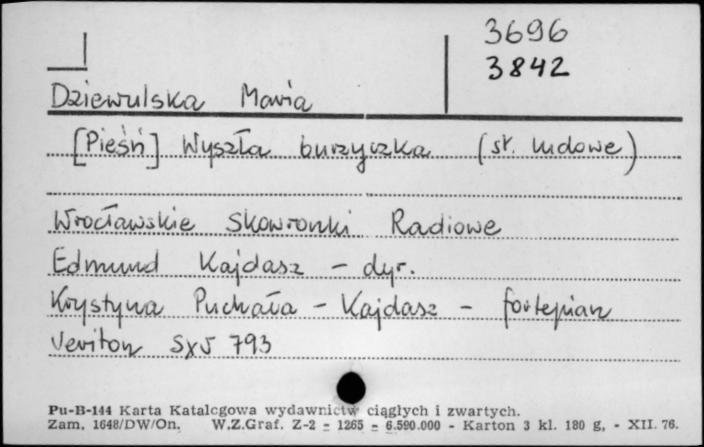 3696
3842
Dziewulska Maria
[Pieśń] Wyszła burzyczka (sł. ludowe)
Wrocławskie Skowronki Radiowe
Edmund Kajdasz - dyr.
Krystyna Puchała - Kajdasz - fortepian
Veriton SXV 793
Pu-B-144 Karta Katalogowa wydawnictw ciągłych i zwartych.
Zam. 1648/DW/On. W.Z.Graf. Z-2 = 1265 = 6.590.000 - Karton 3 kl. 180 g, - XII. 76.